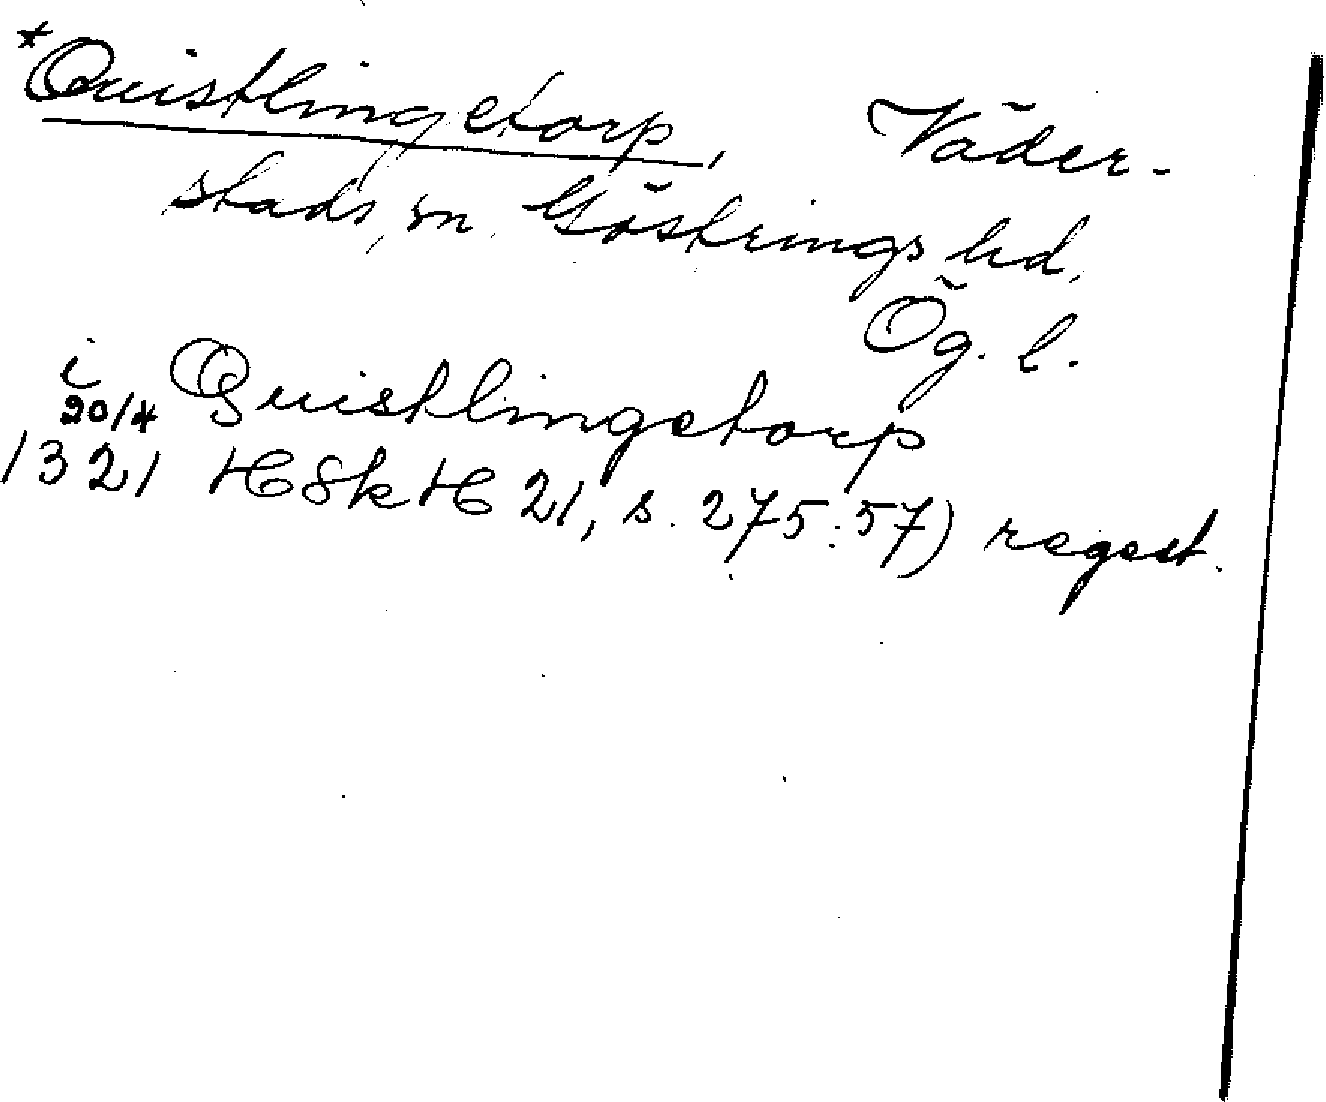 *Quistlingetorp, Väder-
stads sn. Göstrings hd.
Ög. l.
i Quistlingetorp
20/4
1321 HSkH 21, s. 275:57) regest.